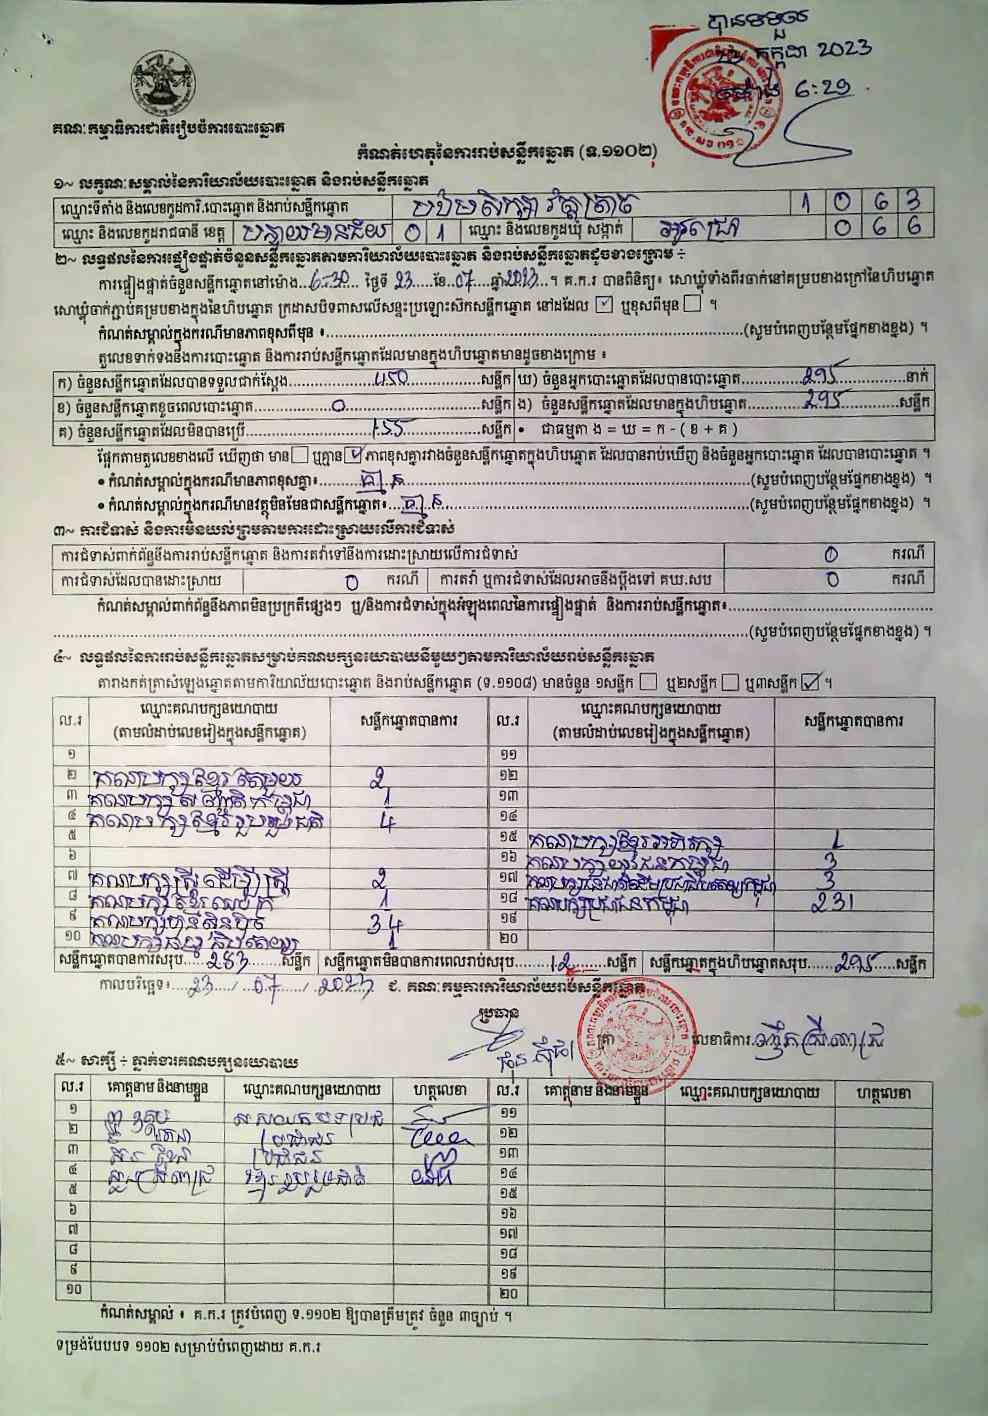 បានទទួល
23 កក្កដា 2023
ម៉ោង 6:29
គណៈកម្មាធិការជាតិរៀបចំការបោះឆ្នោត
កំណត់ហេតុនៃការរាប់សន្លឹកឆ្នោត (ទ.១១០២)
១~ លក្ខណៈសម្គាល់នៃការិយាល័យបោះឆ្នោត និងរាប់សន្លឹកឆ្នោត
ឈ្មោះទីតាំង និងលេខកូដការិ.បោះឆ្នោត និងរាប់សន្លឹកឆ្នោត 1 0 6 3
ឈ្មោះ និងលេខកូដរាជធានី ខេត្ត បន្ទាយមានជ័យ 0 1 ឈ្មោះ និងលេខកូដឃុំ សង្កាត់ អូរជ្រៅ 0 6 6
២~ លទ្ធផលនៃការផ្ទៀងផ្ទាត់ចំនួនសន្លឹកឆ្នោតតាមការិយាល័យបោះឆ្នោត និងរាប់សន្លឹកឆ្នោតដូចខាងក្រោម ៖
ការផ្ទៀងផ្ទាត់ចំនួនសន្លឹកឆ្នោតនៅម៉ោង...6:30... ថ្ងៃទី 23.....ខែ...07....ឆ្នាំ.2023..។ គ.ក.រ បានពិនិត្យ៖ សោឃ្លុំទាំងពីរចាក់នៅគម្របខាងក្រៅនៃហិបឆ្នោត
សោឃ្លុំចាក់ភ្ជាប់គម្របខាងក្នុងនៃហិបឆ្នោត ក្រដាសបិទពាសលើសន្ទះប្រឡោះសឹកសន្លឹកឆ្នោត នៅដដែល ☑ ឬខុសពីមុន ☐ ។
កំណត់សម្គាល់ក្នុងករណីមានភាពខុសពីមុន ៖..........(សូមបំពេញបន្ថែមផ្នែកខាងខ្នង) ។
តួលេខទាក់ទងនឹងការបោះឆ្នោត និងការរាប់សន្លឹកឆ្នោតដែលមានក្នុងហិបឆ្នោតមានដូចខាងក្រោម ៖
ក) ចំនួនសន្លឹកឆ្នោតដែលបានទទួលជាក់ស្តែង........450........សន្លឹក ឃ) ចំនួនអ្នកបោះឆ្នោតដែលបានបោះឆ្នោត........295........នាក់
ខ) ចំនួនសន្លឹកឆ្នោតខូចពេលបោះឆ្នោត........0........សន្លឹក ង) ចំនួនសន្លឹកឆ្នោតដែលមានក្នុងហិបឆ្នោត........295........សន្លឹក
គ) ចំនួនសន្លឹកឆ្នោតដែលមិនបានប្រើ........155........សន្លឹក • ជាធម្មតា ង = ឃ = ក - ( ខ + គ )
ផ្អែកតាមតួលេខខាងលើ ឃើញថា មាន ☐ ឬគ្មាន ☑ ភាពខុសគ្នារវាងចំនួនសន្លឹកឆ្នោតក្នុងហិបឆ្នោត ដែលបានរាប់ឃើញ និងចំនួនអ្នកបោះឆ្នោត ដែលបានបោះឆ្នោត ។
• កំណត់សម្គាល់ក្នុងករណីមានភាពខុសគ្នា៖........គ្មាន........(សូមបំពេញបន្ថែមផ្នែកខាងខ្នង) ។
• កំណត់សម្គាល់ក្នុងករណីមានវត្ថុមិនមែនជាសន្លឹកឆ្នោត៖....គ្មាន........(សូមបំពេញបន្ថែមផ្នែកខាងខ្នង) ។
៣~ ការជំទាស់ និងការមិនយល់ព្រមតាមការដោះស្រាយលើការជំទាស់
ការជំទាស់ពាក់ព័ន្ធនឹងការរាប់សន្លឹកឆ្នោត និងការតវ៉ាទៅនឹងការដោះស្រាយលើការជំទាស់ 0 ករណី
ការជំទាស់ដែលបានដោះស្រាយ 0 ករណី ការតវ៉ា ឬការជំទាស់ដែលអាចនឹងប្តឹងទៅ គឃ.សប 0 ករណី
កំណត់សម្គាល់ពាក់ព័ន្ធនឹងភាពមិនប្រក្រតីផ្សេងៗ ឬ/និងការជំទាស់ក្នុងអំឡុងពេលនៃការផ្ទៀងផ្ទាត់ និងការរាប់សន្លឹកឆ្នោត៖..........
..........(សូមបំពេញបន្ថែមផ្នែកខាងខ្នង) ។
៤~ លទ្ធផលនៃការរាប់សន្លឹកឆ្នោតសម្រាប់គណបក្សនយោបាយនីមួយៗតាមការិយាល័យរាប់សន្លឹកឆ្នោត
តារាងកត់ត្រាសំឡេងឆ្នោតតាមការិយាល័យបោះឆ្នោត និងរាប់សន្លឹកឆ្នោត (ទ.១១០៨) មានចំនួន ១សន្លឹក ☐ ឬ២សន្លឹក ☐ ឬ៣សន្លឹក ☑ ។
ល.រ ឈ្មោះគណបក្សនយោបាយ (តាមលំដាប់លេខរៀងក្នុងសន្លឹកឆ្នោត) សន្លឹកឆ្នោតបានការ ល.រ ឈ្មោះគណបក្សនយោបាយ (តាមលំដាប់លេខរៀងក្នុងសន្លឹកឆ្នោត) សន្លឹកឆ្នោតបានការ
១ ១១
២ គណបក្សខ្មែរតែមួយ 2 ១២
៣ គណបក្ស 1 ១៣
៤ គណបក្សខ្មែររួបរួមជាតិ 4 ១៤
៥ ១៥ គណបក្សខ្មែរអភិរក្ស 1
៦ ១៦ គណបក្សយុវជនកម្ពុជា 3
៧ គណបក្សស្ត្រីដើម្បីស្ត្រី 2 ១៧ គណបក្ស 3
៨ គណបក្ស 1 ១៨ គណបក្សប្រជាជនកម្ពុជា 231
៩ គណបក្សហ៊្វុនស៊ិនប៉ិច 34 ១៩
១០ គណបក្សធម្មាធិបតេយ្យ 1 ២០
សន្លឹកឆ្នោតបានការសរុប......283......សន្លឹក សន្លឹកឆ្នោតមិនបានការពេលរាប់សរុប......12......សន្លឹក សន្លឹកឆ្នោតក្នុងហិបឆ្នោតសរុប......295......សន្លឹក
កាលបរិច្ឆេទ៖....23..../..07..../..2023 ជ. គណៈកម្មការការិយាល័យរាប់សន្លឹកឆ្នោត
ប្រធាន
លេខាធិការ
៥~ សាក្សី ÷ ភ្នាក់ងារគណបក្សនយោបាយ
ល.រ គោត្តនាម និងនាមខ្លួន ឈ្មោះគណបក្សនយោបាយ ហត្ថលេខា ល.រ គោត្តនាម និងនាមខ្លួន ឈ្មោះគណបក្សនយោបាយ ហត្ថលេខា
១ ១១
២ ប្រជាជន ១២
៣ ប្រជាជន ១៣
៤ ខ្មែររួបរួមជាតិ ១៤
៥ ១៥
៦ ១៦
៧ ១៧
៨ ១៨
៩ ១៩
១០ ២០
កំណត់សម្គាល់ ៖ គ.ក.រ ត្រូវបំពេញ ទ.១១០២ ឱ្យបានត្រឹមត្រូវ ចំនួន ៣ច្បាប់ ។
ទម្រង់បែបបទ ១១០២ សម្រាប់បំពេញដោយ គ.ក.រ